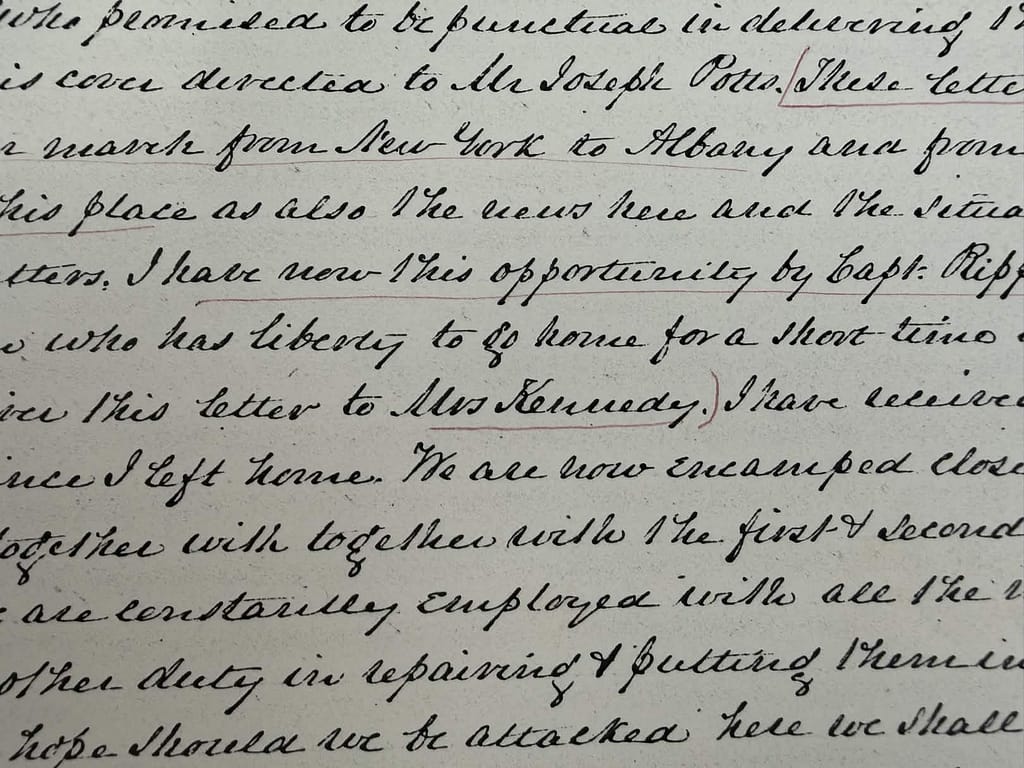 who promised to be punctual in delivering th
is cover directed to Mr Joseph Potts. (These lette
r march from New York to Albany and from
his place as also the news here and the situa
tters. I have now this opportunity by Capt. Ripp
n who has liberty to go home for a short time
iver this letter to Mrs Kennedy.) I have receive
ince I left home. We are now encamped close
together with together with the first & second
e are constantly employed with all the
other duty in repairing & putting them in
hope should we be attacked here we shall